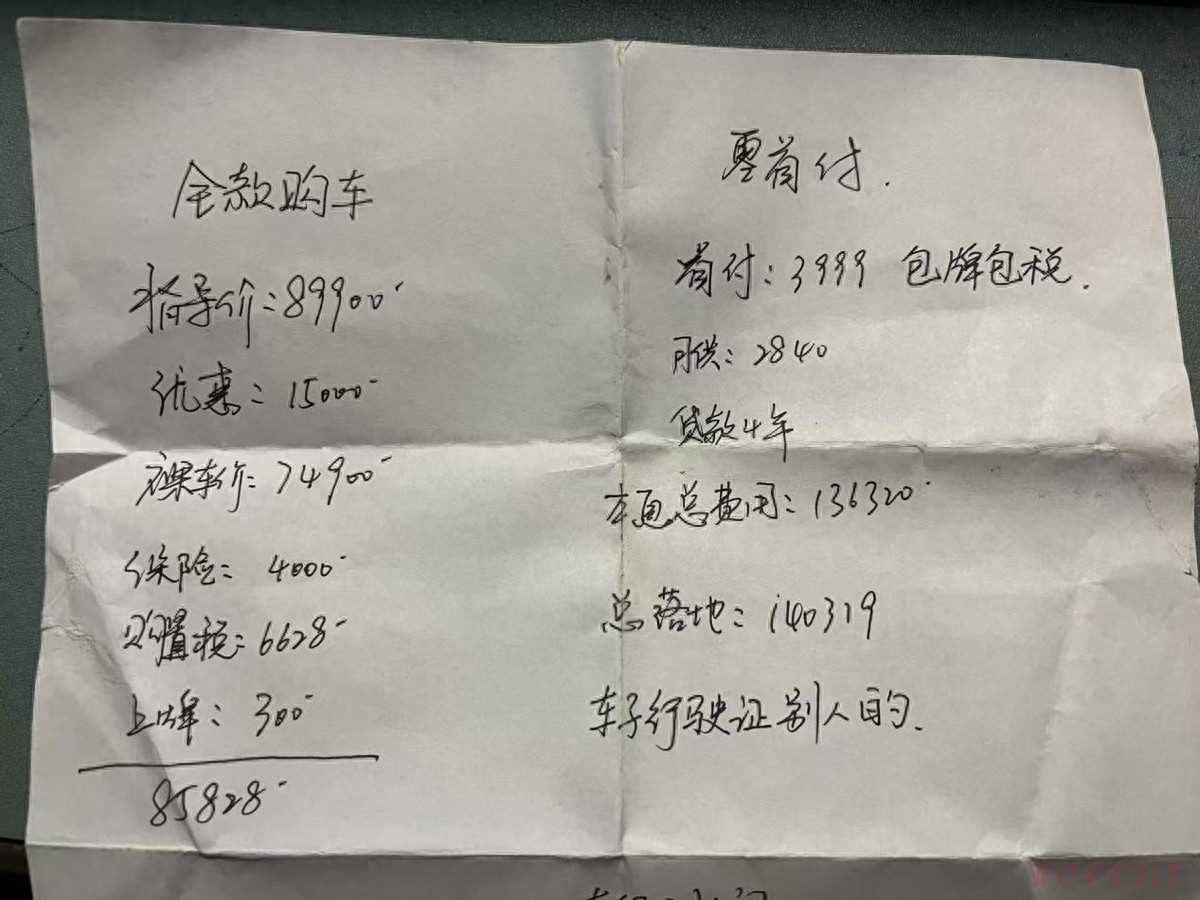 全款购车
指导价：89900
优惠：15000
裸车价：74900
保险：4000
购置税：6628
上牌：300
85828
零首付.
首付：3999 包牌包税.
月供：2840
贷款4年
车贷总费用：136320
总落地：140319
车子行驶证别人的.